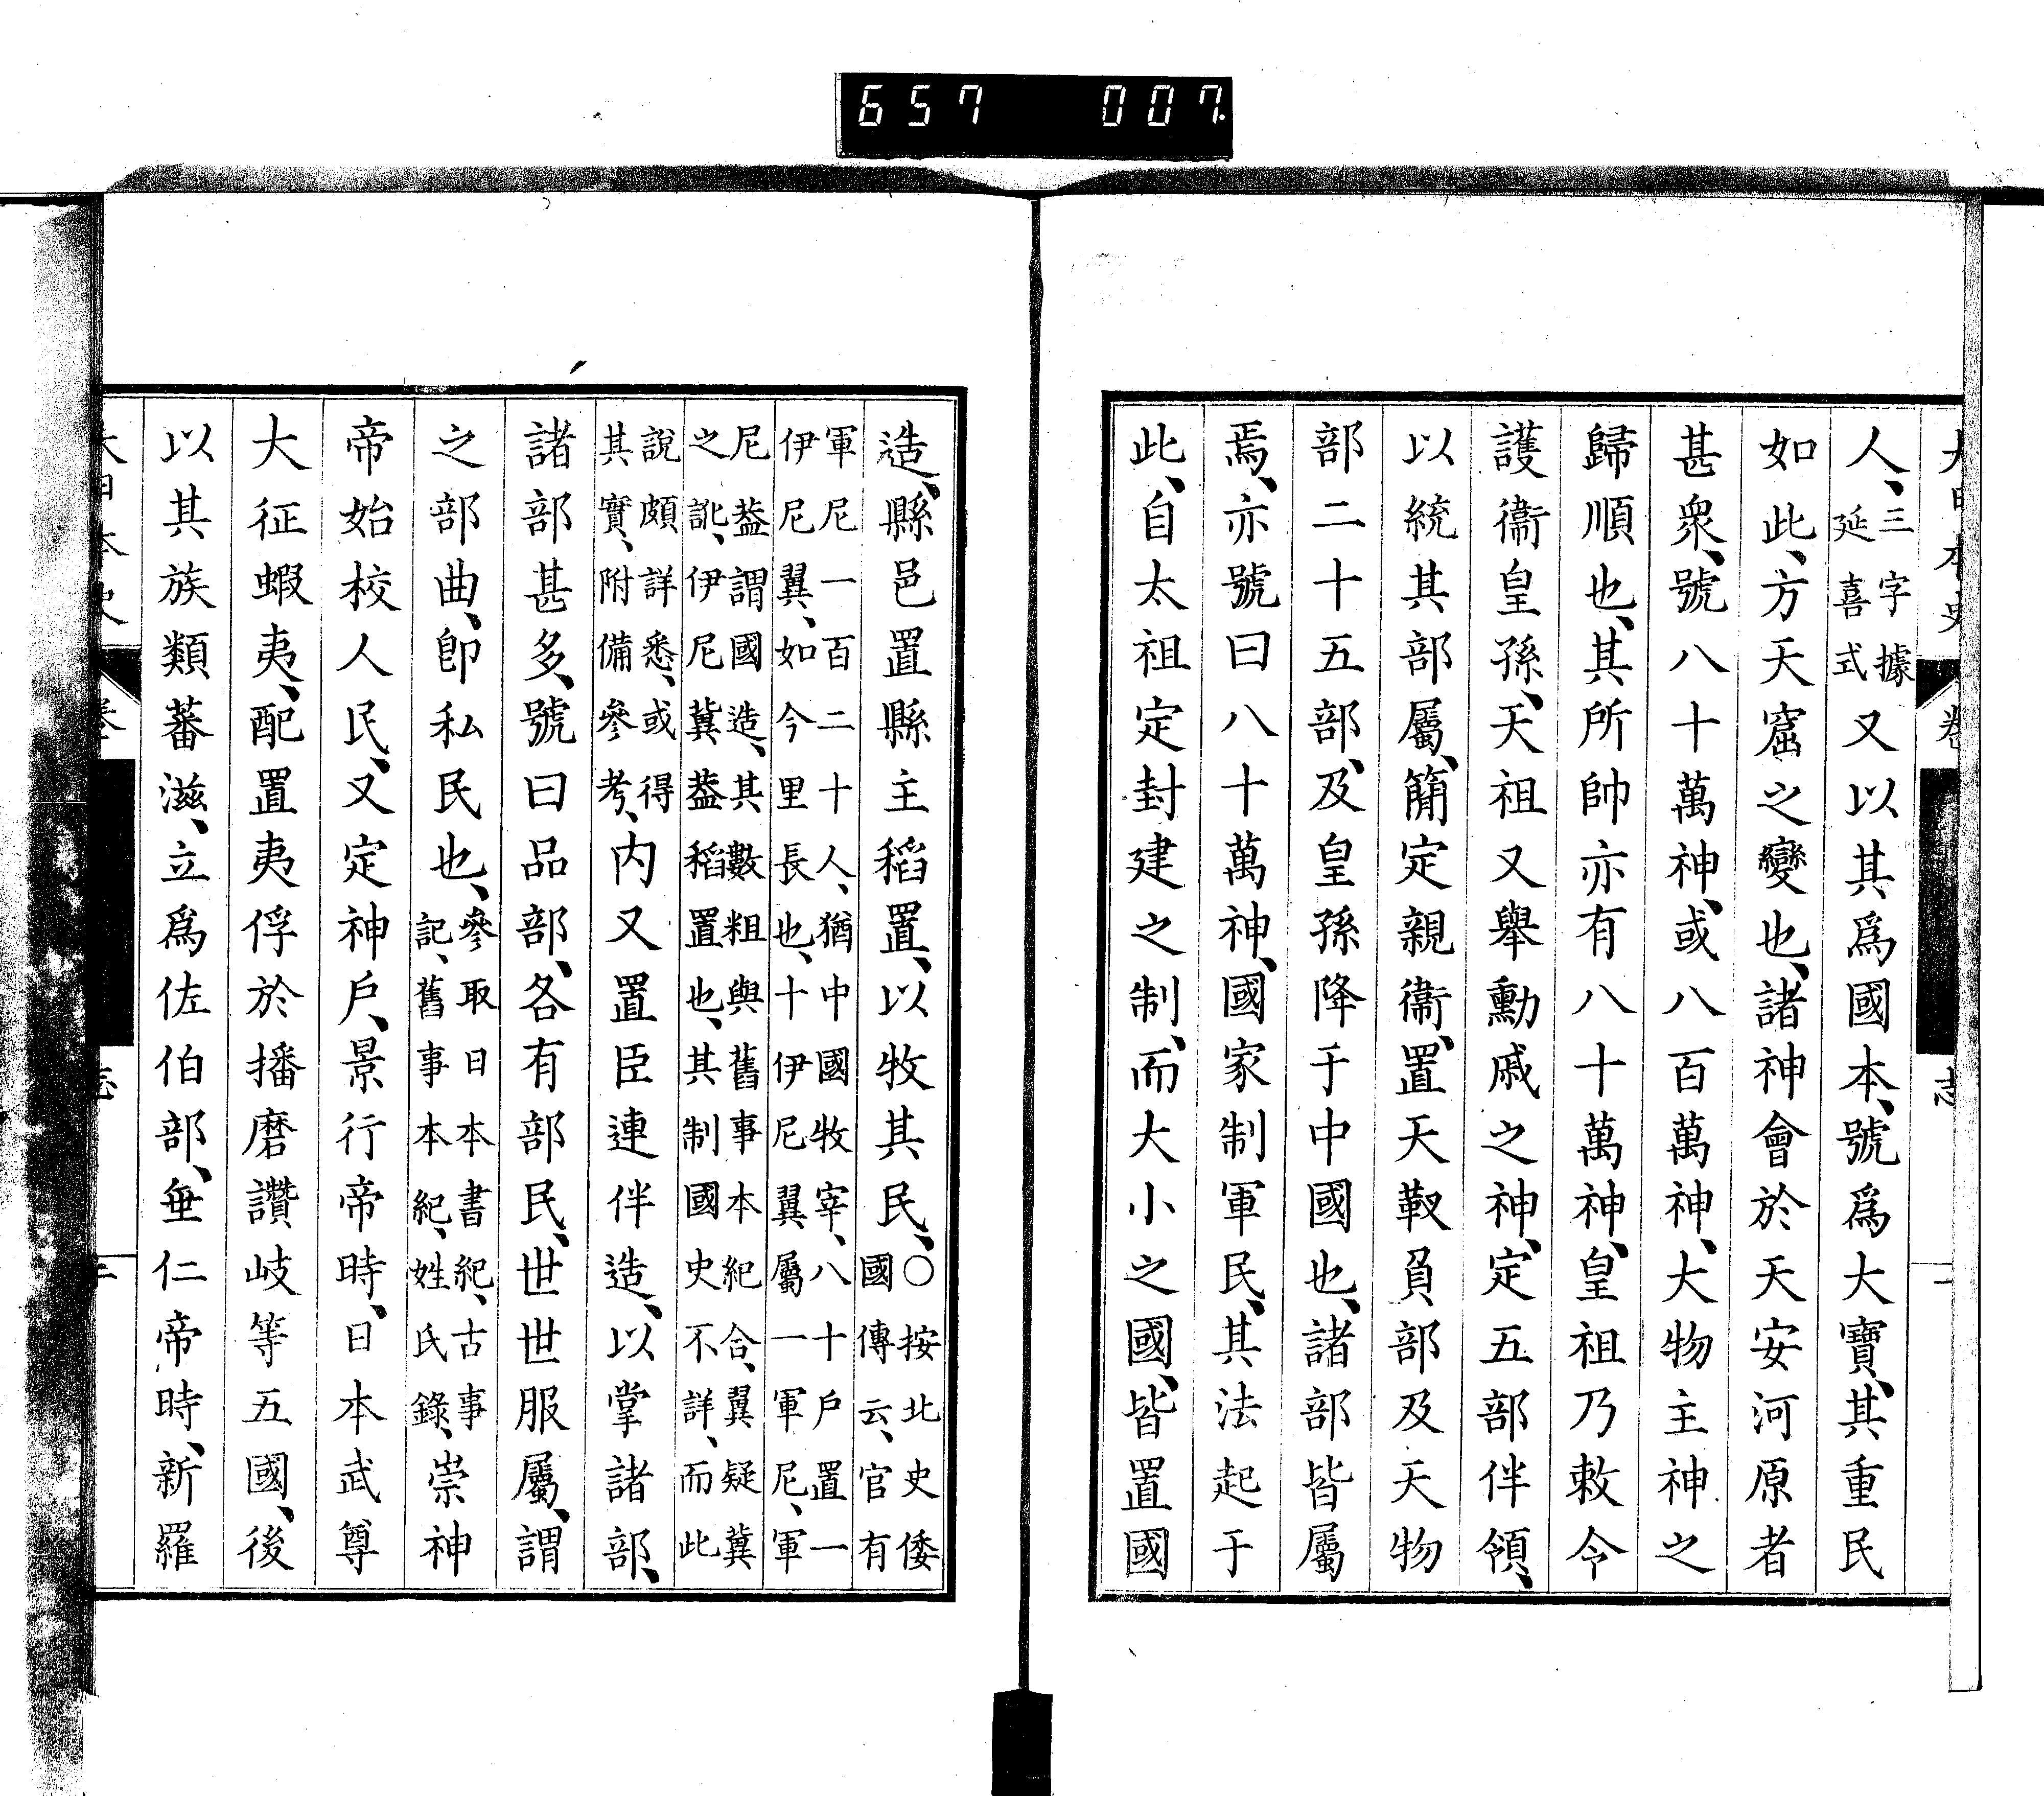 657 007.
大日本史 卷 志
人、三字據延喜式又以其爲國本、號爲大寶、其重民
如此、方天窟之變也、諸神會於天安河原者
甚衆、號八十萬神、或八百萬神、大物主神之
歸順也、其所帥亦有八十萬神、皇祖乃敕令
護衞皇孫、天祖又舉勳戚之神、定五部伴領、
以統其部屬、簡定親衞、置天靫負部及天物
部二十五部、及皇孫降于中國也、諸部皆屬
焉、亦號曰八十萬神、國家制軍民、其法起于
此、自太祖定封建之制、而大小之國、皆置國
造、縣邑置縣主稻置、以牧其民、○按北史倭國傳云、官有
軍尼一百二十人、猶中國牧宰、八十戶置一伊尼翼、如今里長也、十伊尼翼屬一軍尼、軍
尼蓋謂國造、其數粗與舊事本紀合、翼疑冀之訛、伊尼冀蓋稻置也、其制國史不詳、而此
說頗詳悉、或得其實、附備參考、內又置臣連伴造、以掌諸部、
諸部甚多、號曰品部、各有部民、世世服屬、謂
之部曲、卽私民也、參取日本書紀、古事記、舊事本紀、姓氏錄、崇神
帝始校人民、又定神戶、景行帝時、日本武尊
大征蝦夷、配置夷俘於播磨讚岐等五國、後
以其族類蕃滋、立爲佐伯部、垂仁帝時、新羅
大日本史 卷 志